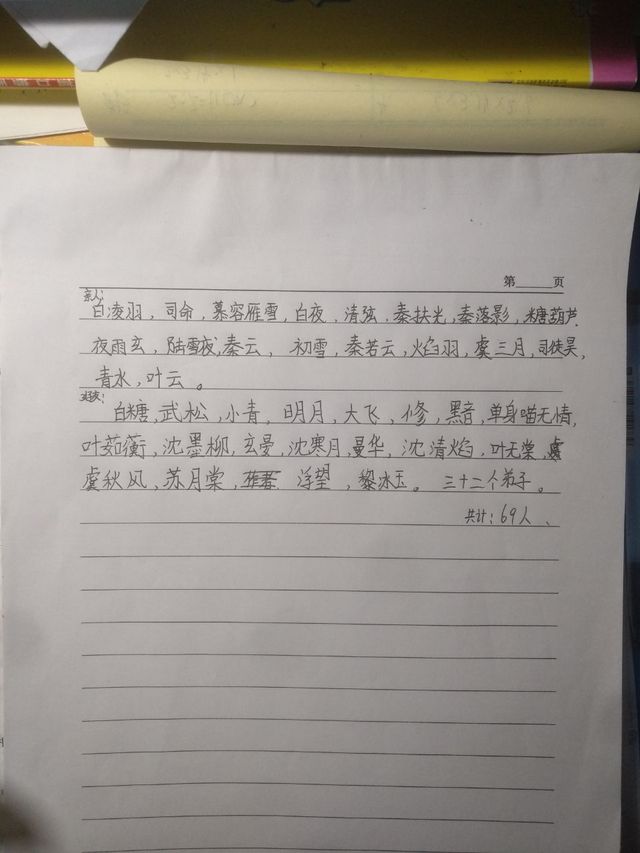 第 页
亲人:
白凌羽，司命，慕容雁雪，白夜，清弦，秦扶光，秦落影，糖葫芦，
夜雨玄，陆雪夜，秦云， 初雪，秦若云，火焰羽，虞三月，司徒昊，
青水，叶云。
白糖，武松，小青，明月，大飞，修，黑音，单身喵无情，
叶茹蘅，沈墨柳，玄曼，沈寒月，曼华，沈清焰，叶无棠，虞
虞秋风，苏月棠， 浮望，黎冰玉。 三十二个弟子。
共计：69人、